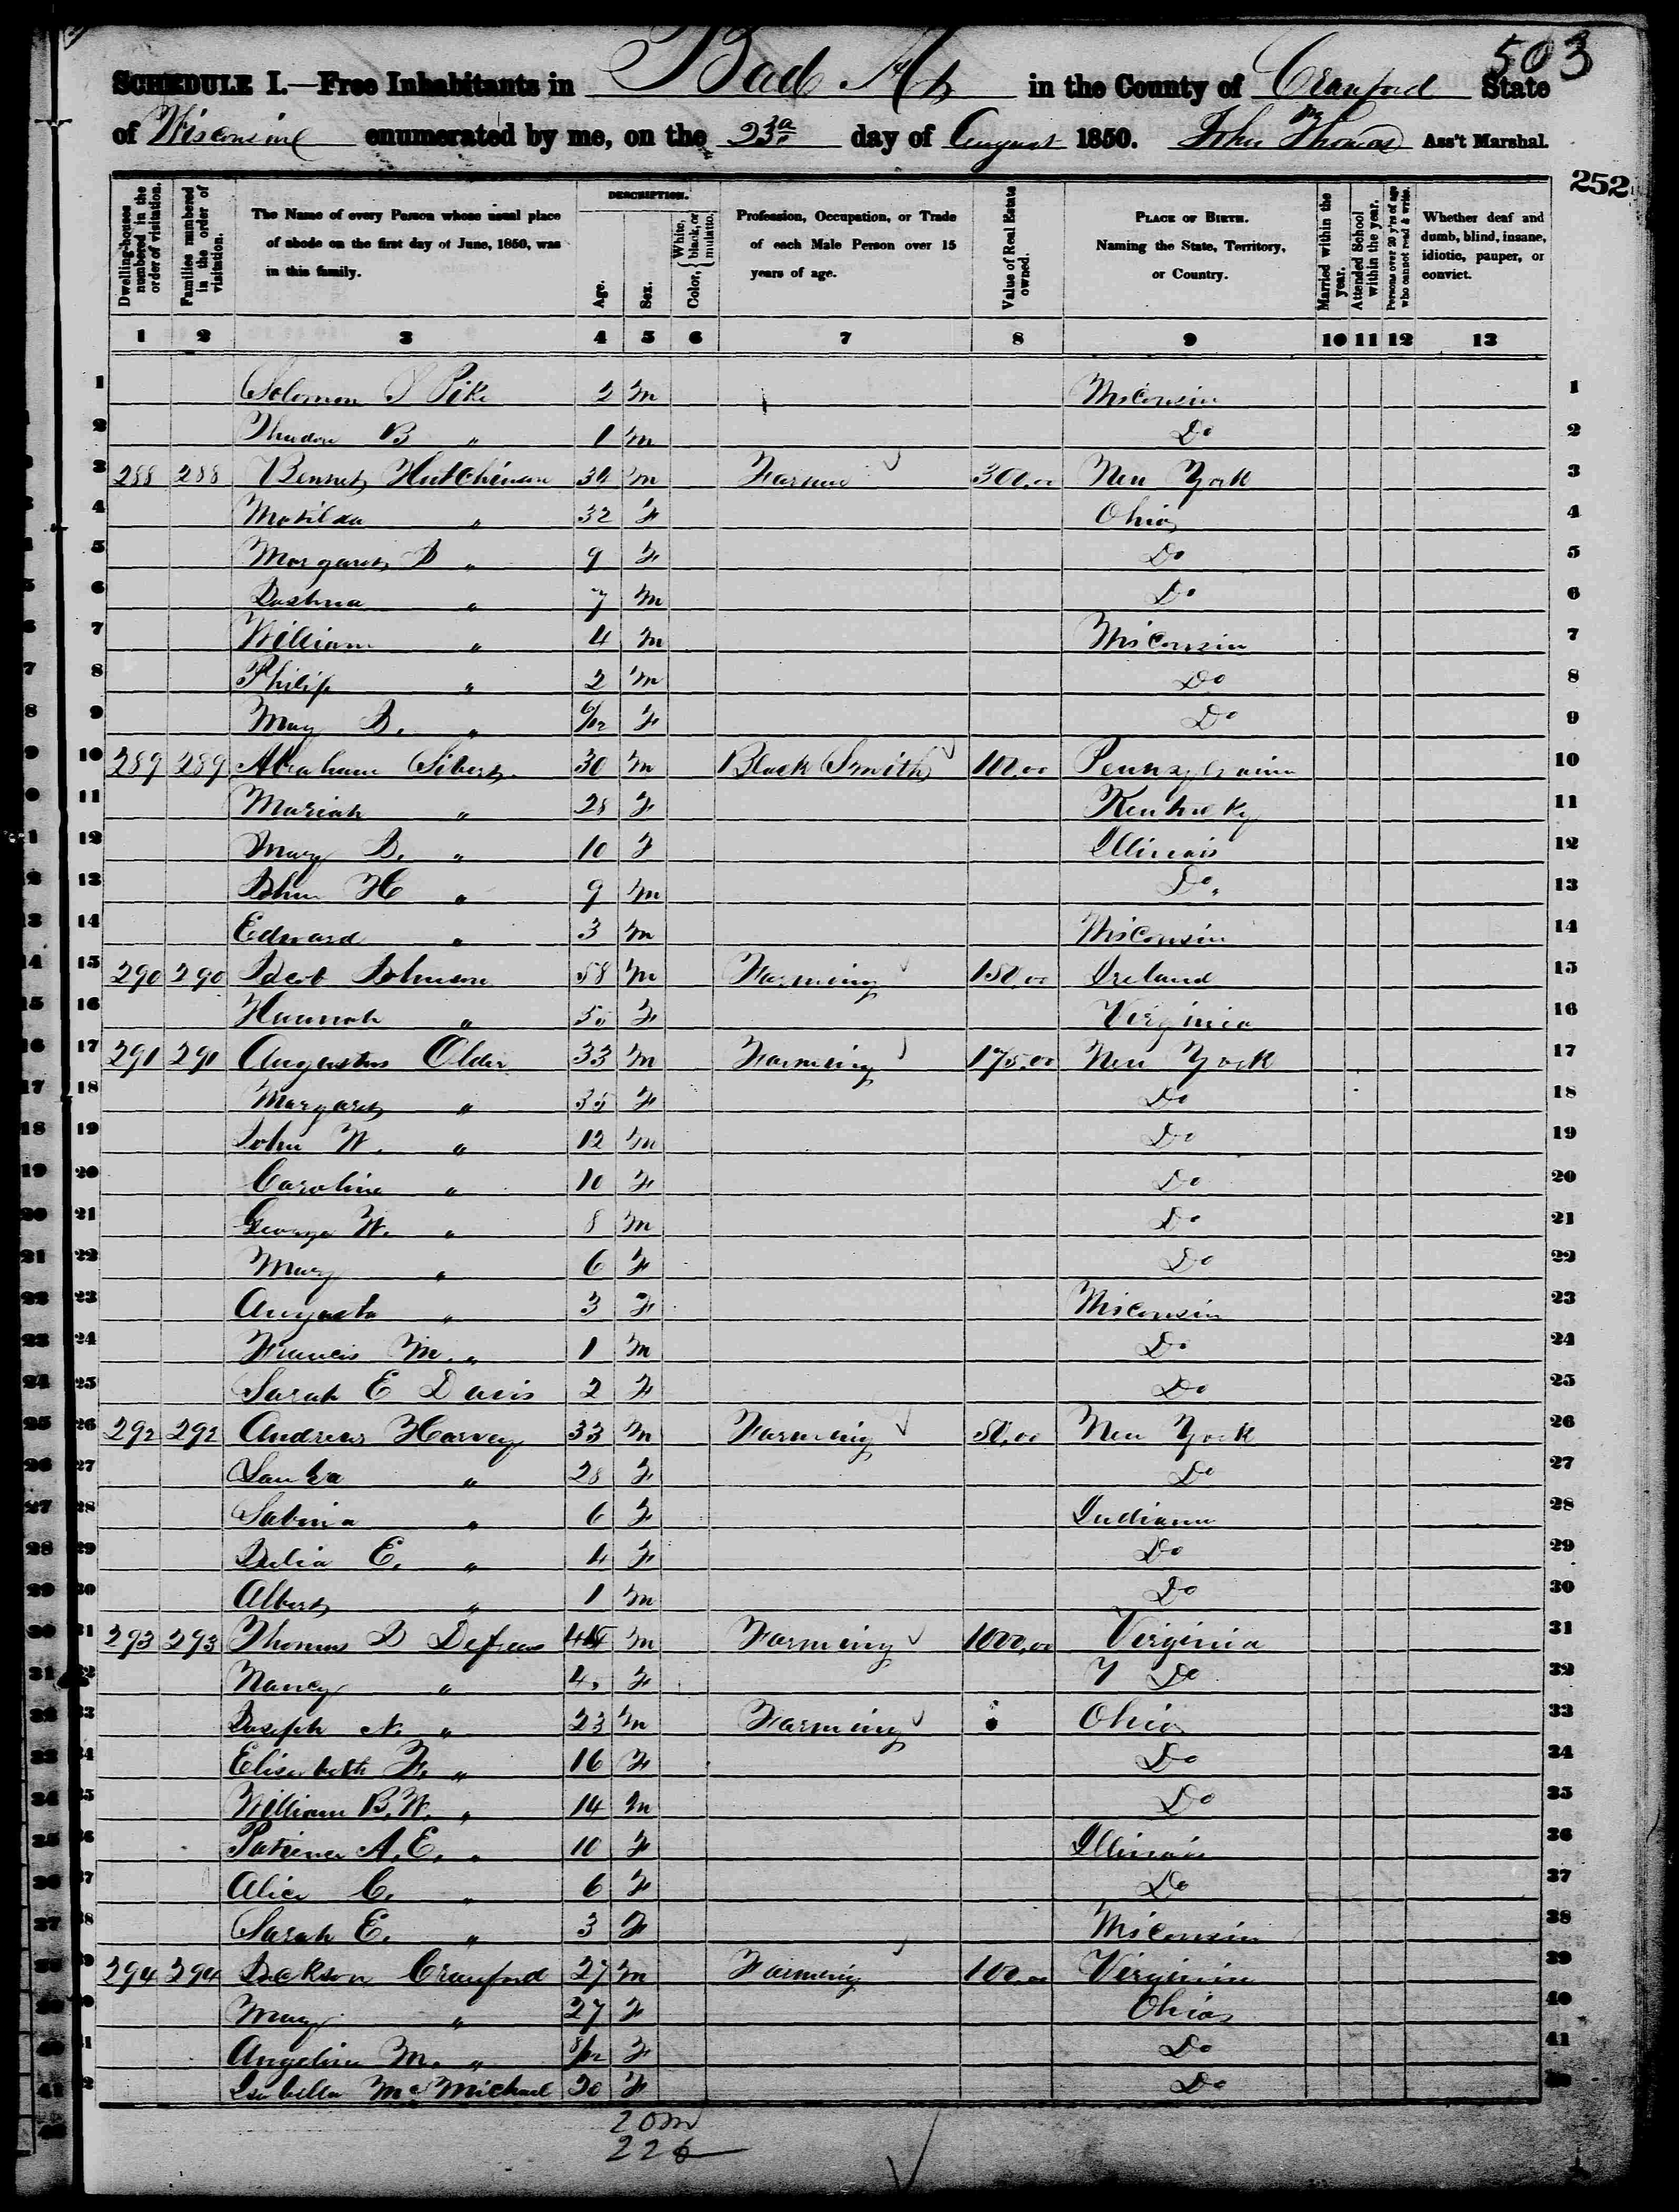 503
SCHEDULE I.—Free Inhabitants in Bad Ax in the County of Crawford State
of Wisconsin enumerated by me, on the 23d day of August 1850. John Thomas Ass't Marshal.
252
Dwelling-houses numbered in the order of visitation.
Families numbered in the order of visitation.
The Name of every Person whose usual place of abode on the first day of June, 1850, was in this family.
DESCRIPTION.
Age.
Sex.
Color, { White, black, or mulatto.
Profession, Occupation, or Trade of each Male Person over 15 years of age.
Value of Real Estate owned.
PLACE OF BIRTH. Naming the State, Territory, or Country.
Married within the year.
Attended School within the year.
Persons over 20 y'rs of age who cannot read & write.
Whether deaf and dumb, blind, insane, idiotic, pauper, or convict.
1 2 3 4 5 6 7 8 9 10 11 12 13
1 Solomon S Pike 2 m Wisconsin 1
2 B " 1 m Do 2
3 288 288 Bennet Hutchinson 34 m Farmer 300.00 New York 3
4 Matilda " 32 F Ohio 4
5 Margaret " 9 F Do 5
6 Joshua " 7 m Do 6
7 William " 4 m Wisconsin 7
8 Philip " 2 m Do 8
9 May " 6/12 F Do 9
10 289 289 Abraham Sibert 30 m Black Smith 100.00 Pennsylvania 10
11 Mariah " 28 F Kentucky 11
12 Mary " 10 F Illinois 12
13 John H " 9 m Do. 13
14 Edward " 3 m Wisconsin 14
15 290 290 Jacob Johnson 58 m Farming 150.00 Ireland 15
16 Hannah " 55 F Virginia 16
17 291 291 Augustus Older 33 m Farming 175.00 New York 17
18 Margaret " 35 F Do 18
19 John W. " 12 m Do 19
20 Caroline " 10 F Do 20
21 George W. " 8 m Do 21
22 Mary " 6 F Do 22
23 Augusta " 3 F Wisconsin 23
24 Francis M. " 1 m Do 24
25 Sarah E Davis 2 F Do 25
26 292 292 Andrew Harvey 33 m Farming 50.00 New York 26
27 " 28 F Do 27
28 Sabina " 6 F Indiana 28
29 Julia E. " 4 F Do 29
30 Albert " 1 m Do 30
31 293 293 Thomas J Defrees m Farming 1000.00 Virginia 31
32 Nancy " F Do 32
33 Joseph N. " 23 m Farming Ohio 33
34 Elisabeth F. " 16 F Do 34
35 William B. W. " 14 m Do 35
36 Patience A. E. " 10 F Illinois 36
37 Alice C. " 6 F Do 37
38 Sarah E. " 3 F Wisconsin 38
39 294 294 Jackson Crawford 27 m Farming 100.00 Virginia 39
40 Mary " 27 F Ohio 40
41 Angelina M. " 8/12 F Do 41
Isabella McMichael 20 F Do
20 m
22 f